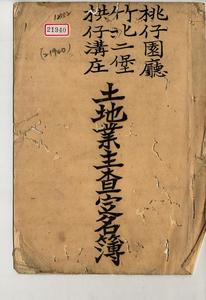 桃仔園廳
竹北二堡
拱仔溝庄
土地業主查定名簿
21940
(21940)